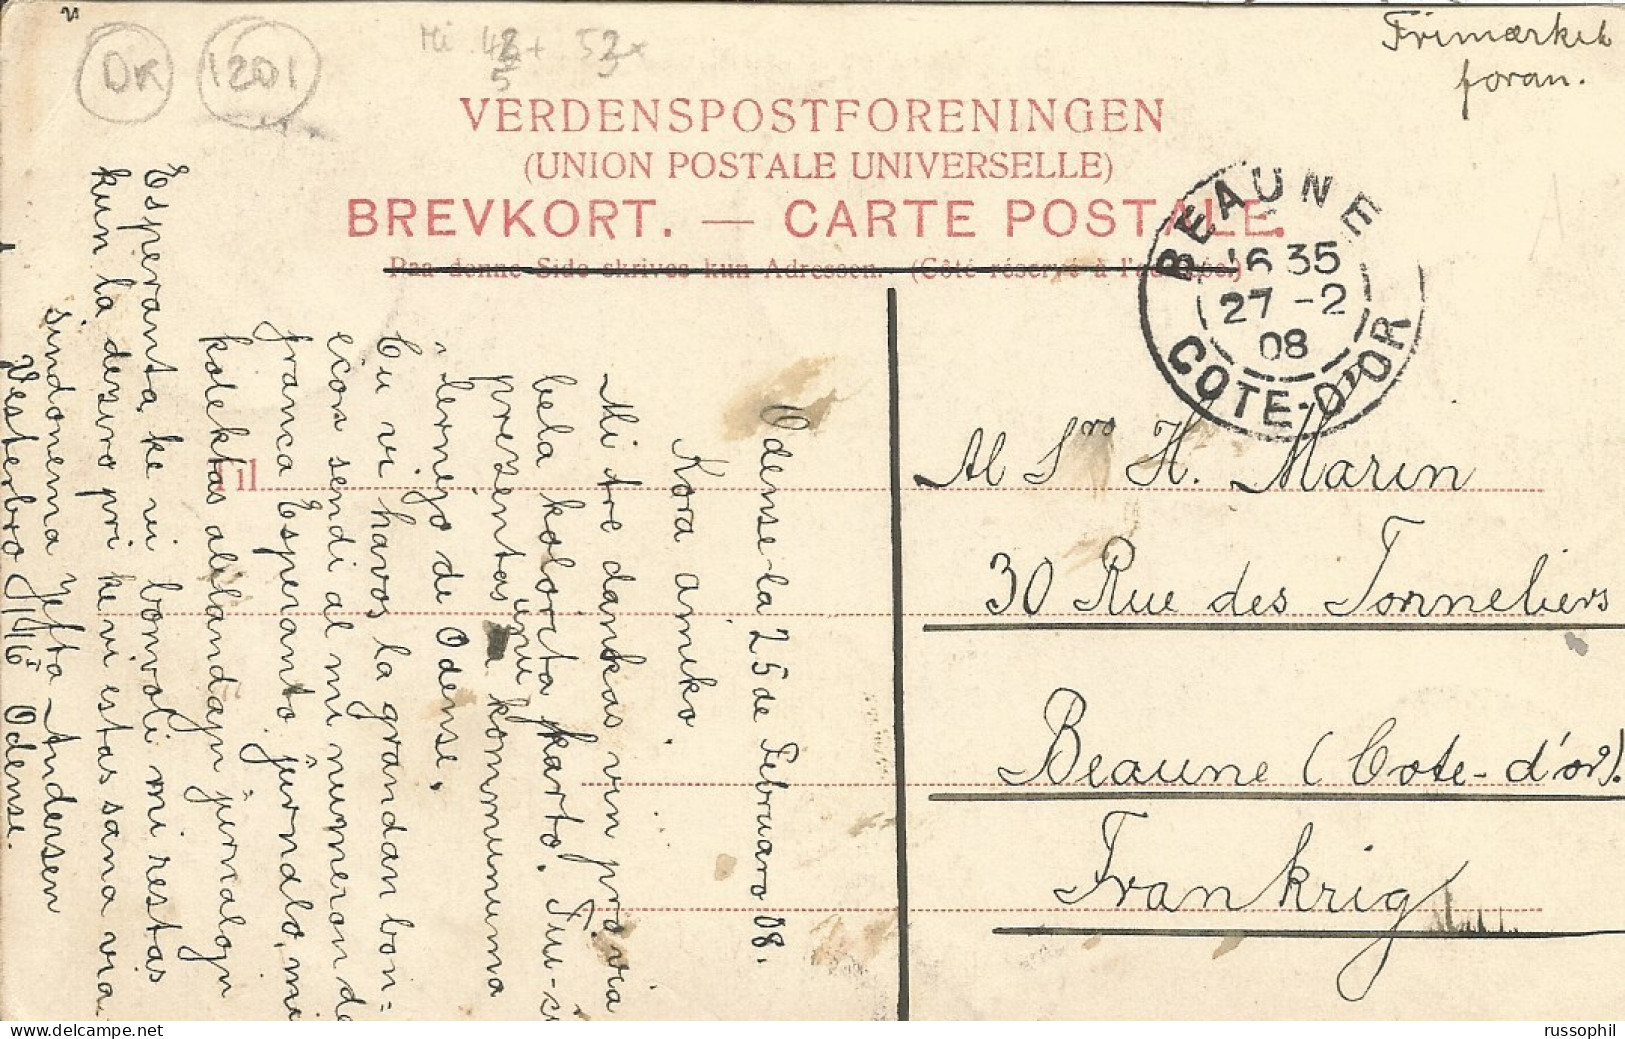 Frimærket
foran.
DK
1201
VERDENSPOSTFORENINGEN
(UNION POSTALE UNIVERSELLE)
BREVKORT. — CARTE POSTALE.
Paa denne Side skrives kun Adressen. (Côté réservé à l'adresse.)
BEAUNE
16 35
27 -2
08
COTE-D'OR
Til
Al Sro H. Marin
30 Rue des Tonneliers
Beaune (Cote-d'or).
Frankrig
Odense la 25 de Februaro 08.
Kora amiko.
Mi tre dankas vin pro via
bela kolorita karto. Tiu-ĉi
prezentas unu kommuna
lernejo de Odense.
Ĉu vi havos la grandan bon=
econ sendi al mi numeron de
franca Esperanto ĵurnalo, mi
kolektas alilandajn ĵurnalojn
Esperanta, ke vi bonvoli mi restas
kun la deziro pri ke vi estas sana via
sindonema Jefta Andersen
Vesterbro 14/16 I Odense.
russophil